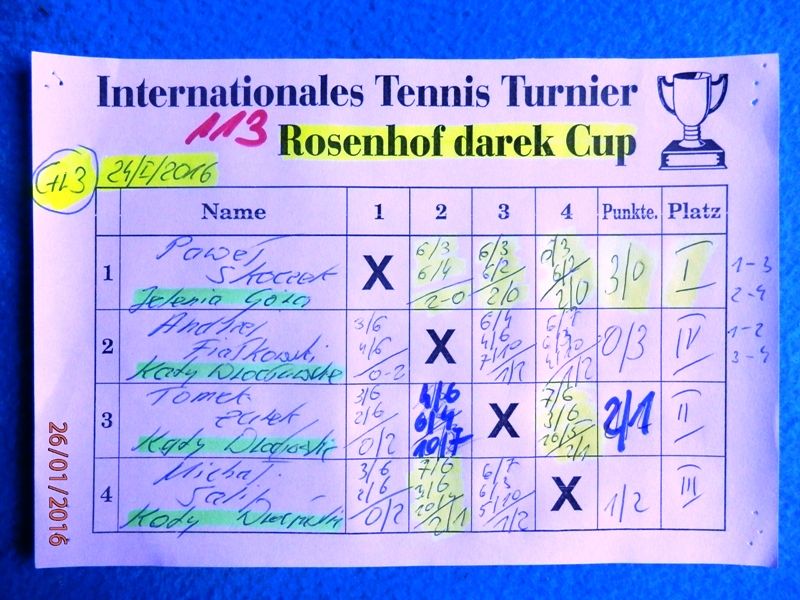 Internationales Tennis Turnier
113 Rosenhof darek Cup
24/I/2016
Name 1 2 3 4 Punkte. Platz
1 Paweł Skoczek Jelenia Góra X 6/3 6/4 2-0 6/3 6/2 2/0 6/2 2/0 3/0 I
1-3
2-4
2 Andrzej Fiałkowski Kąty X 3/6 4/6 0-2 6/4 4/6 7/10 1/2 1/2 0/3 IV
1-2
3-4
3 Tomek Kąty 3/6 2/6 0/2 4/6 6/4 10/7 X 7/6 3/6 10/5 2/1 2/1 II
4 Michał Kąty 3/6 2/6 0/2 7/6 3/6 2/1 6/7 6/3 5/10 1/2 X 1/2 III
26/01/2016